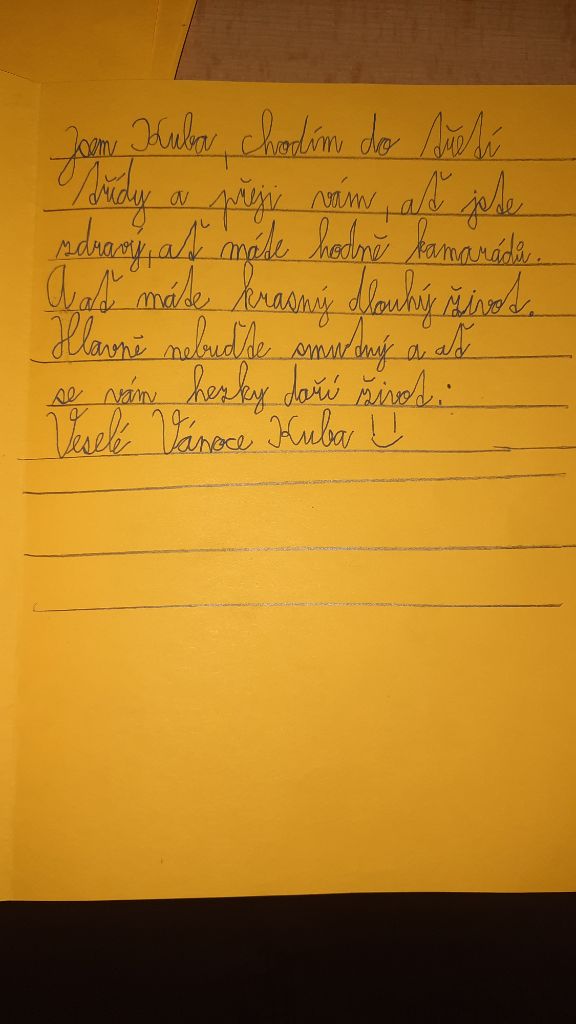 Jsem Kuba, chodím do třetí
třídy a přeji vám, ať jste
zdravý, ať máte hodně kamarádů.
A ať máte krasný dlouhý život.
Hlavně nebuďte smutný a ať
se vám hezky daří život.
Veselé Vánoce Kuba